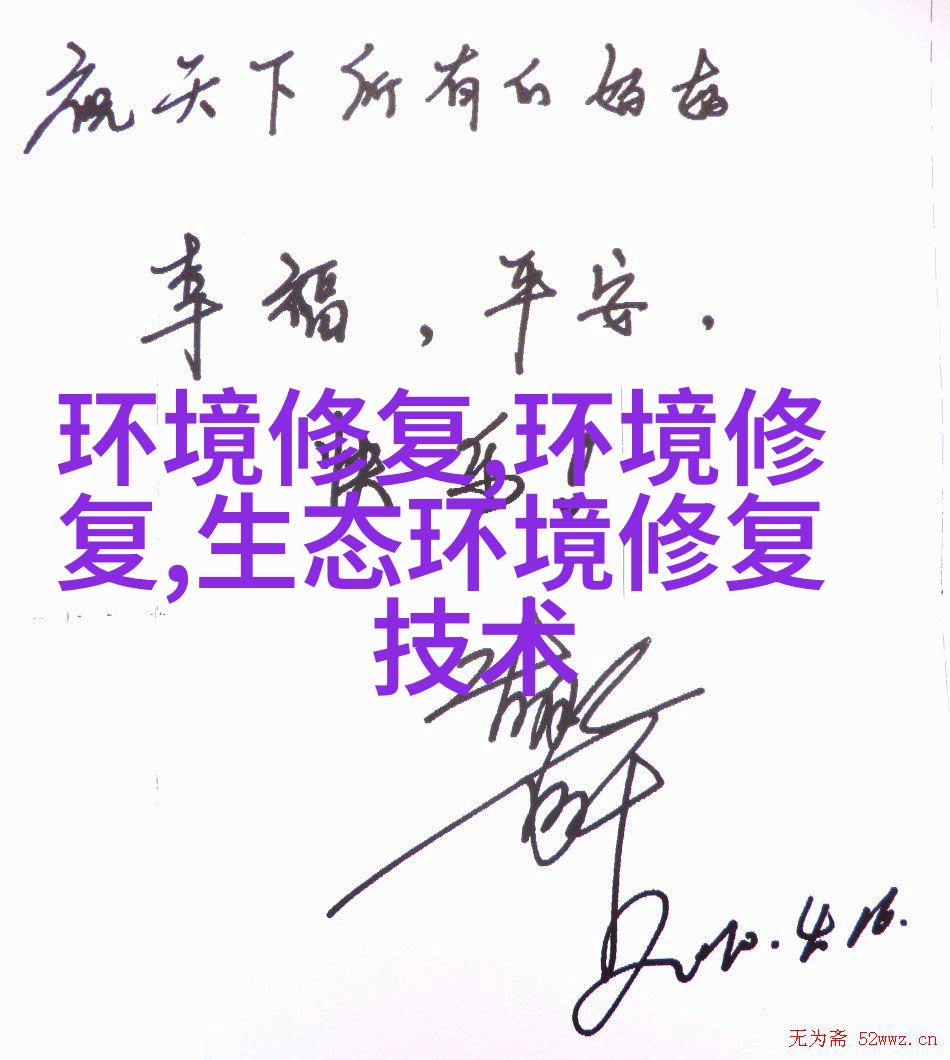 祝天下所有的妈妈
幸福，平安，
快乐！
环境修复,环境修
复,生态环境修复
技术
2010.4.16.
无为斋 52wwz.cn